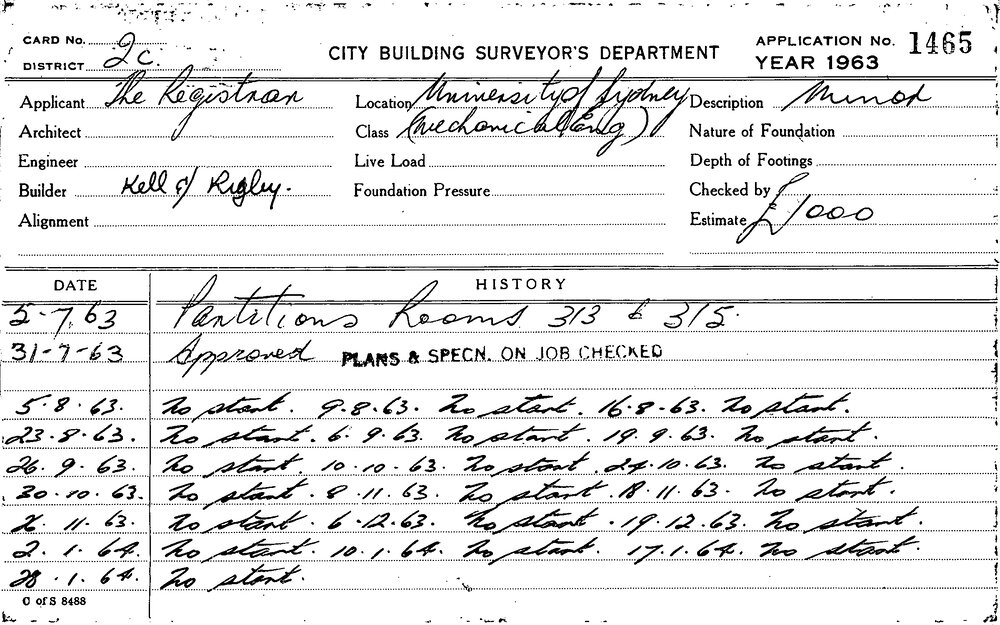 CARD No. CITY BUILDING SURVEYOR'S DEPARTMENT APPLICATION No. 1465
DISTRICT 2c. YEAR 1963
Applicant The Registrar Location University of Sydney Description Minor
Architect Class (Mechanical Eng) Nature of Foundation
Engineer Live Load Depth of Footings
Builder Kell & Rigby. Foundation Pressure Checked by
Alignment Estimate £1000
DATE HISTORY
5-7.63 Partitions Rooms 313 & 315.
31-7-63 Approved PLANS & SPECN. ON JOB CHECKED
5.8.63. No start. 9.8.63. No start. 16.8.63. No start.
23.8.63. No start. 6.9.63. No start. 19.9.63. No start.
26.9.63. No start. 10.10.63. No start. 24.10.63. No start.
30.10.63. No start. 8.11.63. No start. 18.11.63. No start.
26.11.63. No start. 6.12.63. No start. 19.12.63. No start.
2.1.64. No start. 10.1.64. No start. 17.1.64. No start.
28.1.64. No start.
C of S 8488